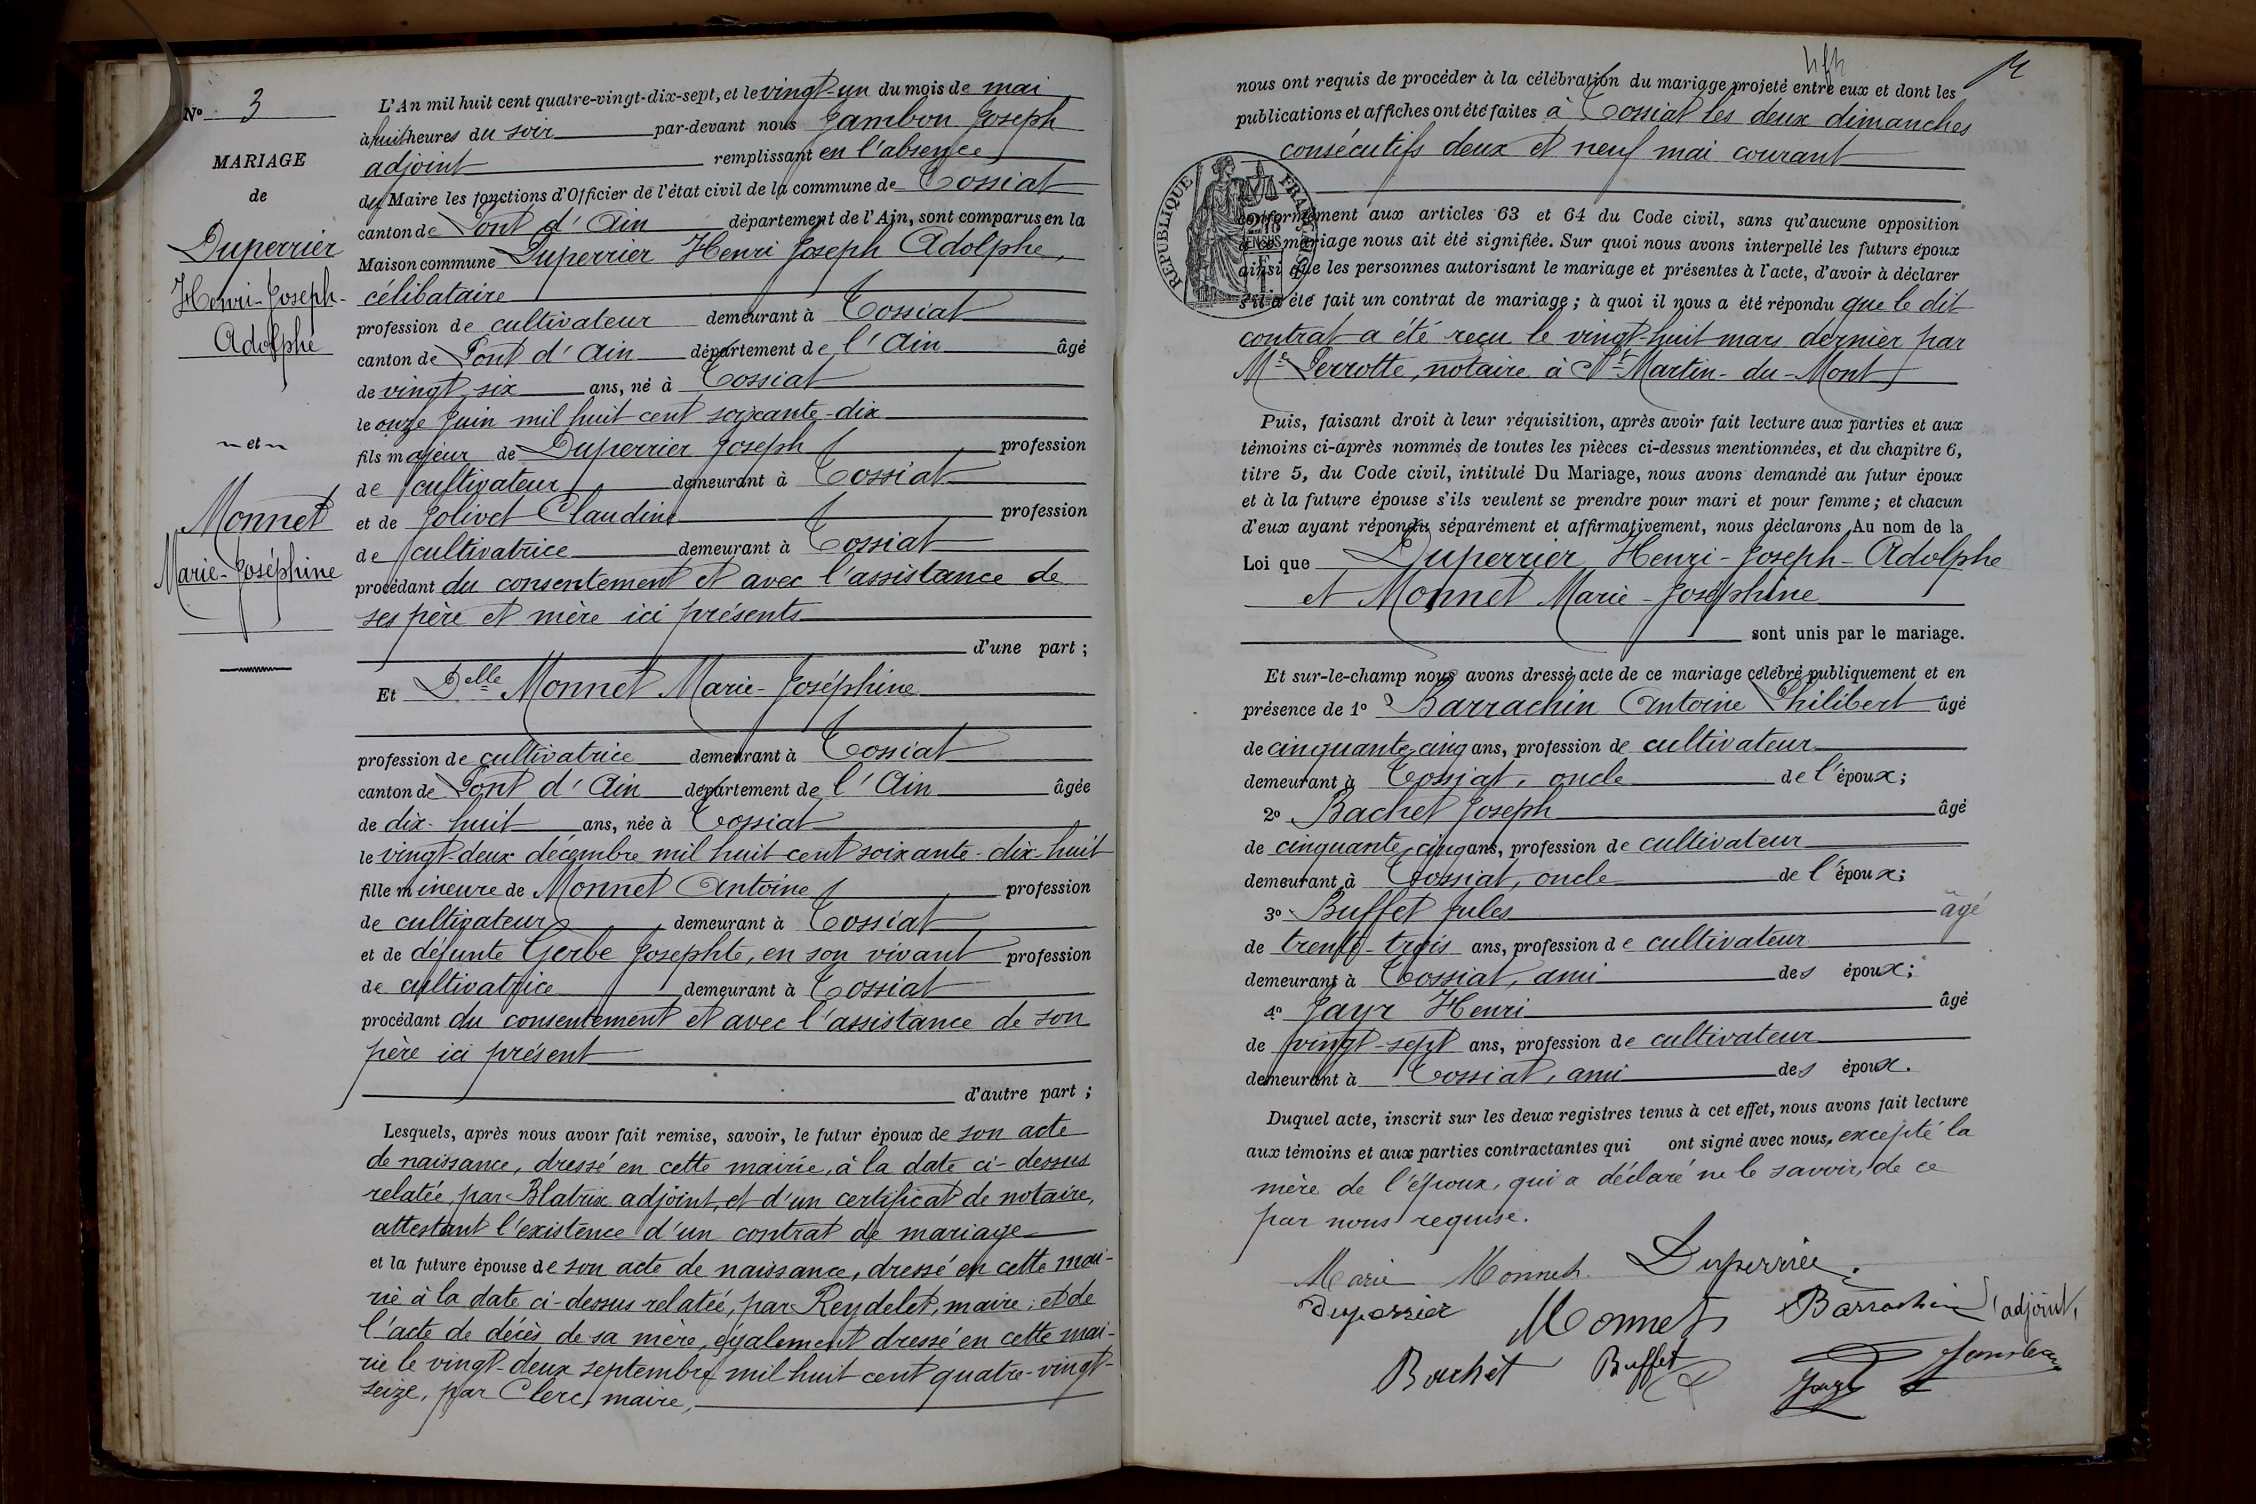 No 3
MARIAGE
de
Duperrier
Henri-Joseph-
Adolphe
et
Monnet
Marie-Joséphine
L'An mil huit cent quatre-vingt-dix-sept, et le vingt-un du mois de mai
à huit heures du soir par-devant nous Jambon Joseph
adjoint remplissant en l'absence
du Maire les fonctions d'Officier de l'état civil de la commune de Tossiat
canton de Pont d'Ain département de l'Ain, sont comparus en la
Maison commune Duperrier Henri Joseph Adolphe,
célibataire
profession de cultivateur demeurant à Tossiat
canton de Pont d'Ain département de l'Ain âgé
de vingt six ans, né à Tossiat
le onze Juin mil huit cent soixante-dix
fils majeur de Duperrier Joseph profession
de cultivateur demeurant à Tossiat
et de Jolivet Claudine profession
de cultivatrice demeurant à Tossiat
procédant du consentement et avec l'assistance de
ses père et mère ici présents
d'une part ;
Et Delle Monnet Marie-Joséphine
profession de cultivatrice demeurant à Tossiat
canton de Pont d'Ain département de l'Ain âgée
de dix-huit ans, née à Tossiat
le vingt-deux décembre mil huit cent soixante-dix-huit
fille mineure de Monnet Antoine profession
de cultivateur demeurant à Tossiat
et de défunte Gerbe Josephte, en son vivant profession
de cultivatrice demeurant à Tossiat
procédant du consentement et avec l'assistance de son
père ici présent
d'autre part ;
Lesquels, après nous avoir fait remise, savoir, le futur époux de son acte
de naissance, dressé en cette mairie, à la date ci-dessus
relatée, par Blatrix adjoint, et d'un certificat de notaire,
attestant l'existence d'un contrat de mariage
et la future épouse de son acte de naissance, dressé en cette mai-
rie à la date ci-dessus relatée, par Reydelet, maire ; et de
l'acte de décès de sa mère, également dressé en cette mai-
rie le vingt-deux septembre mil huit cent quatre-vingt-
seize, par Clerc, maire,
nous ont requis de procéder à la célébration du mariage projeté entre eux et dont les
publications et affiches ont été faites à Tossiat les deux dimanches
consécutifs deux et neuf mai courant
RÉPUBLIQUE FRANÇAISE
conformément aux articles 63 et 64 du Code civil, sans qu'aucune opposition
à ce mariage nous ait été signifiée. Sur quoi nous avons interpellé les futurs époux
ainsi que les personnes autorisant le mariage et présentes à l'acte, d'avoir à déclarer
s'il a été fait un contrat de mariage ; à quoi il nous a été répondu que le dit
contrat a été reçu le vingt-huit mars dernier par
Me Perrotte, notaire à St-Martin-du-Mont
Puis, faisant droit à leur réquisition, après avoir fait lecture aux parties et aux
témoins ci-après nommés de toutes les pièces ci-dessus mentionnées, et du chapitre 6,
titre 5, du Code civil, intitulé Du Mariage, nous avons demandé au futur époux
et à la future épouse s'ils veulent se prendre pour mari et pour femme ; et chacun
d'eux ayant répondu séparément et affirmativement, nous déclarons Au nom de la
Loi que Duperrier Henri-Joseph-Adolphe
et Monnet Marie-Joséphine
sont unis par le mariage.
Et sur-le-champ nous avons dressé acte de ce mariage célébré publiquement et en
présence de 1o Barrachin Antoine Philibert âgé
de cinquante-cinq ans, profession de cultivateur
demeurant à Tossiat, oncle de l'époux ;
2o Bachet Joseph âgé
de cinquante-cinq ans, profession de cultivateur
demeurant à Tossiat, oncle de l'époux ;
3o Buffet Jules âgé
de trente-trois ans, profession de cultivateur
demeurant à Tossiat, ami des époux ;
4o Jayr Henri âgé
de vingt-sept ans, profession de cultivateur
demeurant à Tossiat, ami des époux.
Duquel acte, inscrit sur les deux registres tenus à cet effet, nous avons fait lecture
aux témoins et aux parties contractantes qui ont signé avec nous, excepté la
mère de l'époux, qui a déclaré ne le savoir, de ce
par nous requise.
Marie Monnet Duperrier
Duperrier Monnet Barrachin l'adjoint,
Bachet Buffet Jayr Jambon